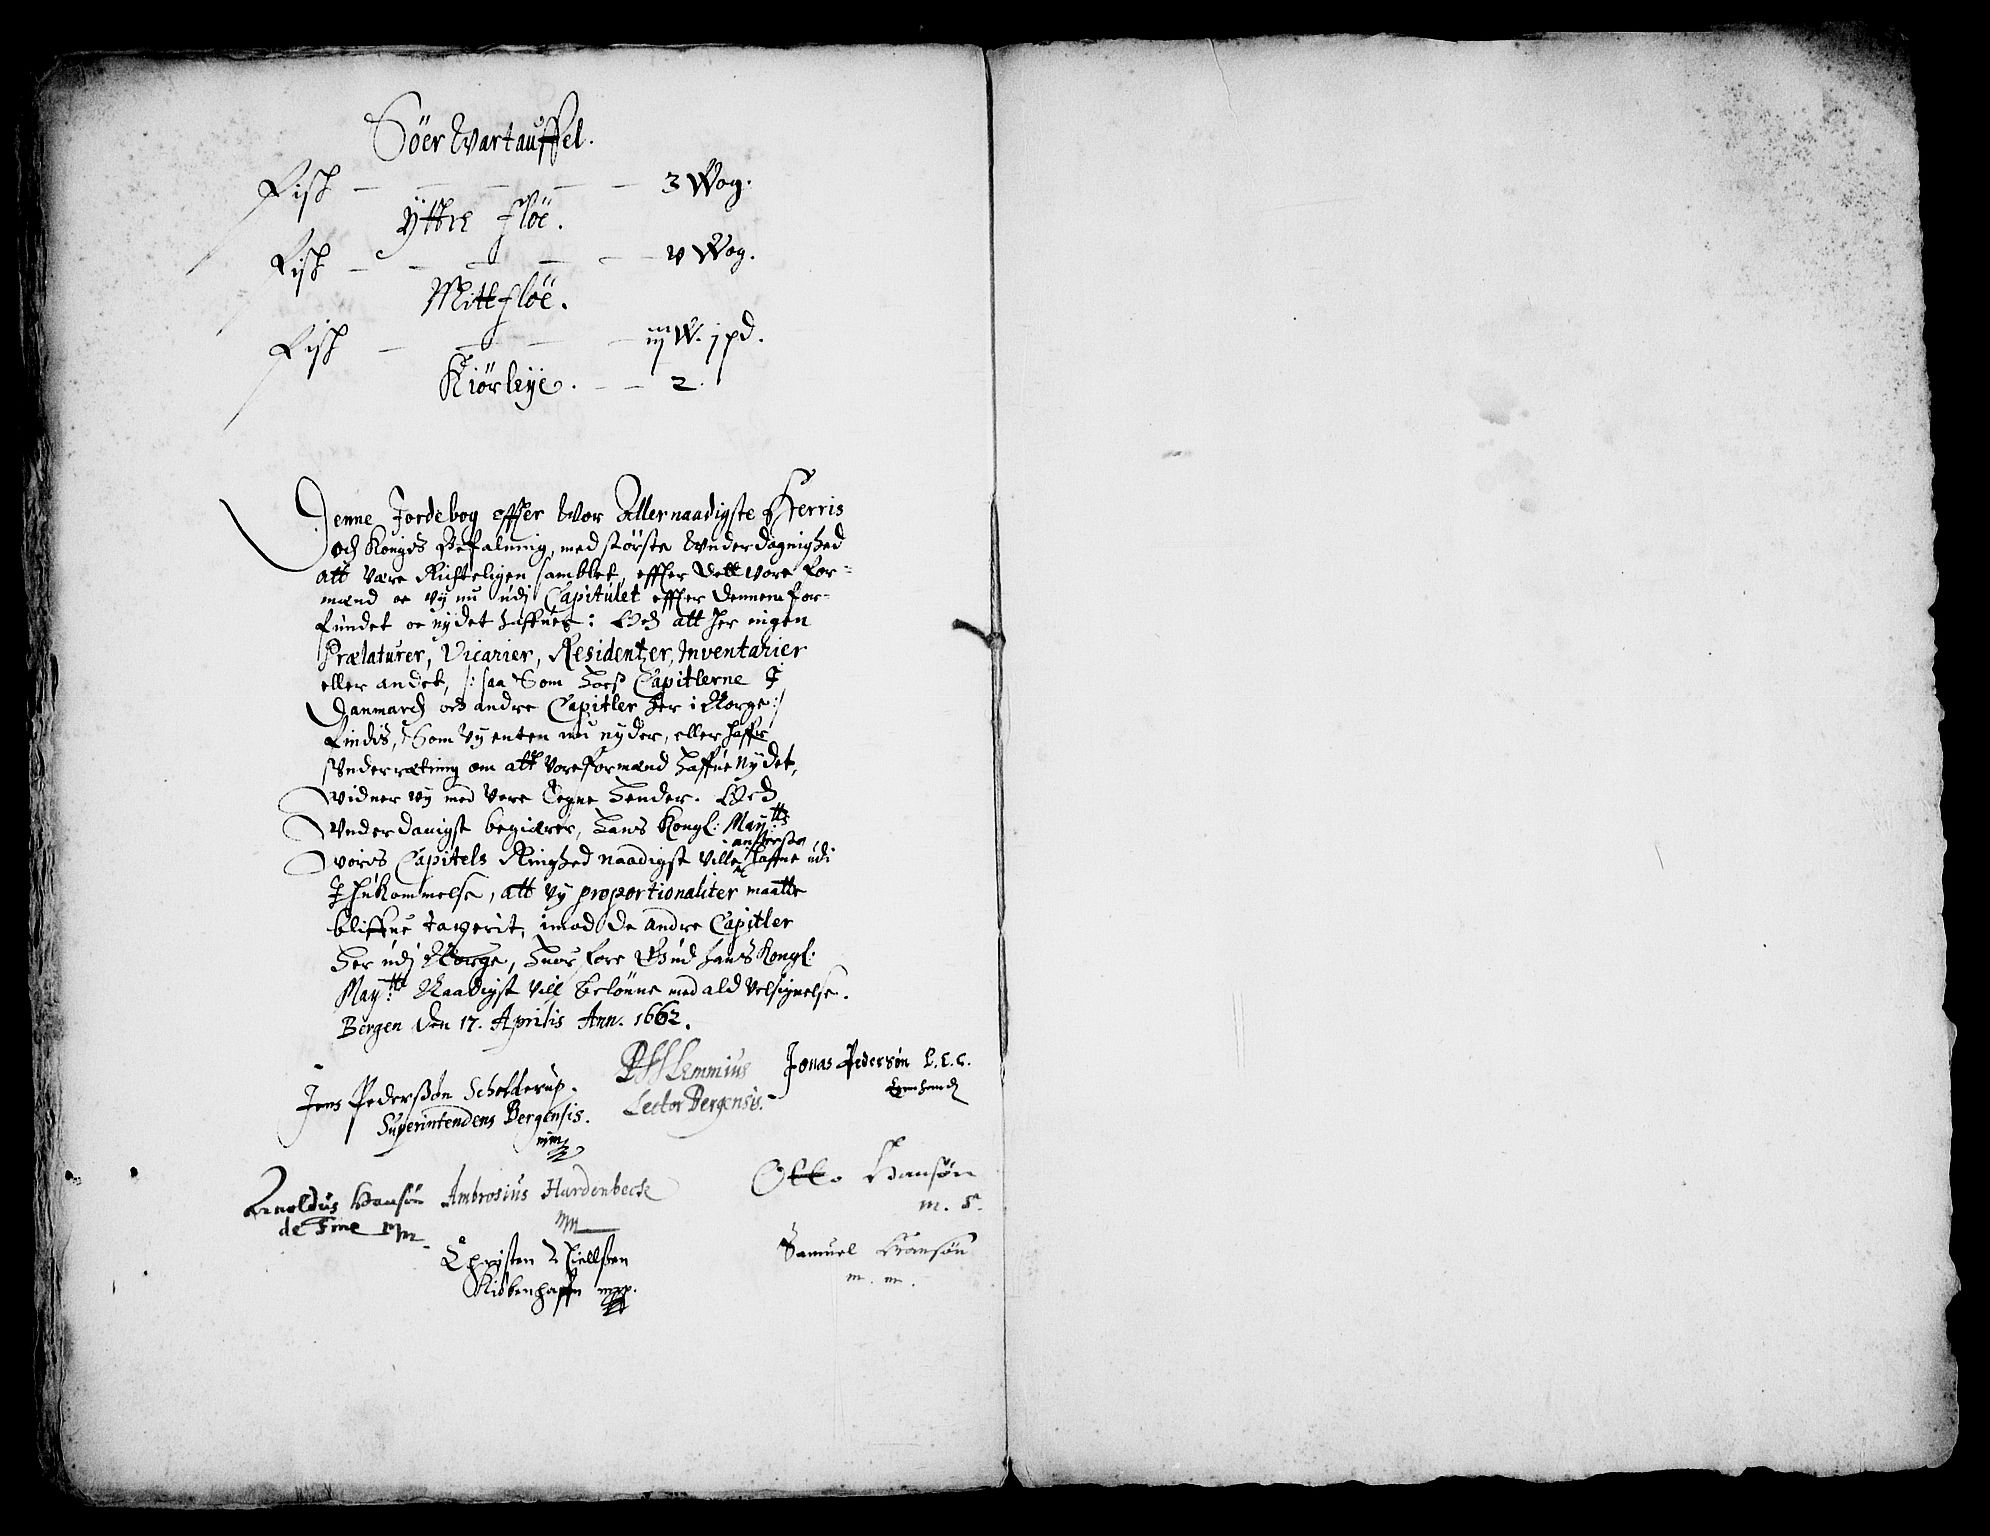 Söer Wartauffel.
Fisk — — — — — 3 Wog.
Ÿttre Flöe.
Fisk — — — — — v Wog.
Mittflöe.
Fisk — — — — iij W. j pd.
Kiörleÿe. — — 2.
Denne Jordebog effter Wor Allernaadigste Herris
och Kongis Befalning, med störste Underdagnighed
att være Richteligen samblet, effter dett vore For-
mænd oc vij nu udj Capitulet effter dennem for-
fundet oc nÿdet haffuer: Och att her ingen
Prælaturer, Vicarier, Residentzer, Inventarier
eller andet, /: saa Som hoes Capitlerne I
Danmarch och andre Capitler her i Norge :/
Findis, Som Vij enten nu nyder, eller haffr
Underretning om att vore Formænd haffue Nydet,
Widner vij med Vore Egne Hender. Och
Underdanigst begiærer, Hans Kongl: Maytts
voris Capitels Ringhed naadigst ville haffue udi
Ihukommelse, att vij proportionaliter maatte
bliffue taxerit, imod de andre Capitler
Her udj Norge, Huor fore Gud Hans Kongl:
Maytt: Naadigst vill belönne med ald Velsignelse.
Bergen den 17. Aprilis Ann. 1662.
Jens Pederßön Schelderup. Lemmius Jonas Pedersön L. E. C.
Superintendens Bergensis. Lector Bergensis. Egenhend
mm
Arnoldus Hansön Ambrosius Hardenbeck Otto Hansön
de Fine mm mm m. s.
Christen Niellßen Samuel Hansön
Kiöbenhaffn mpp. m. m.